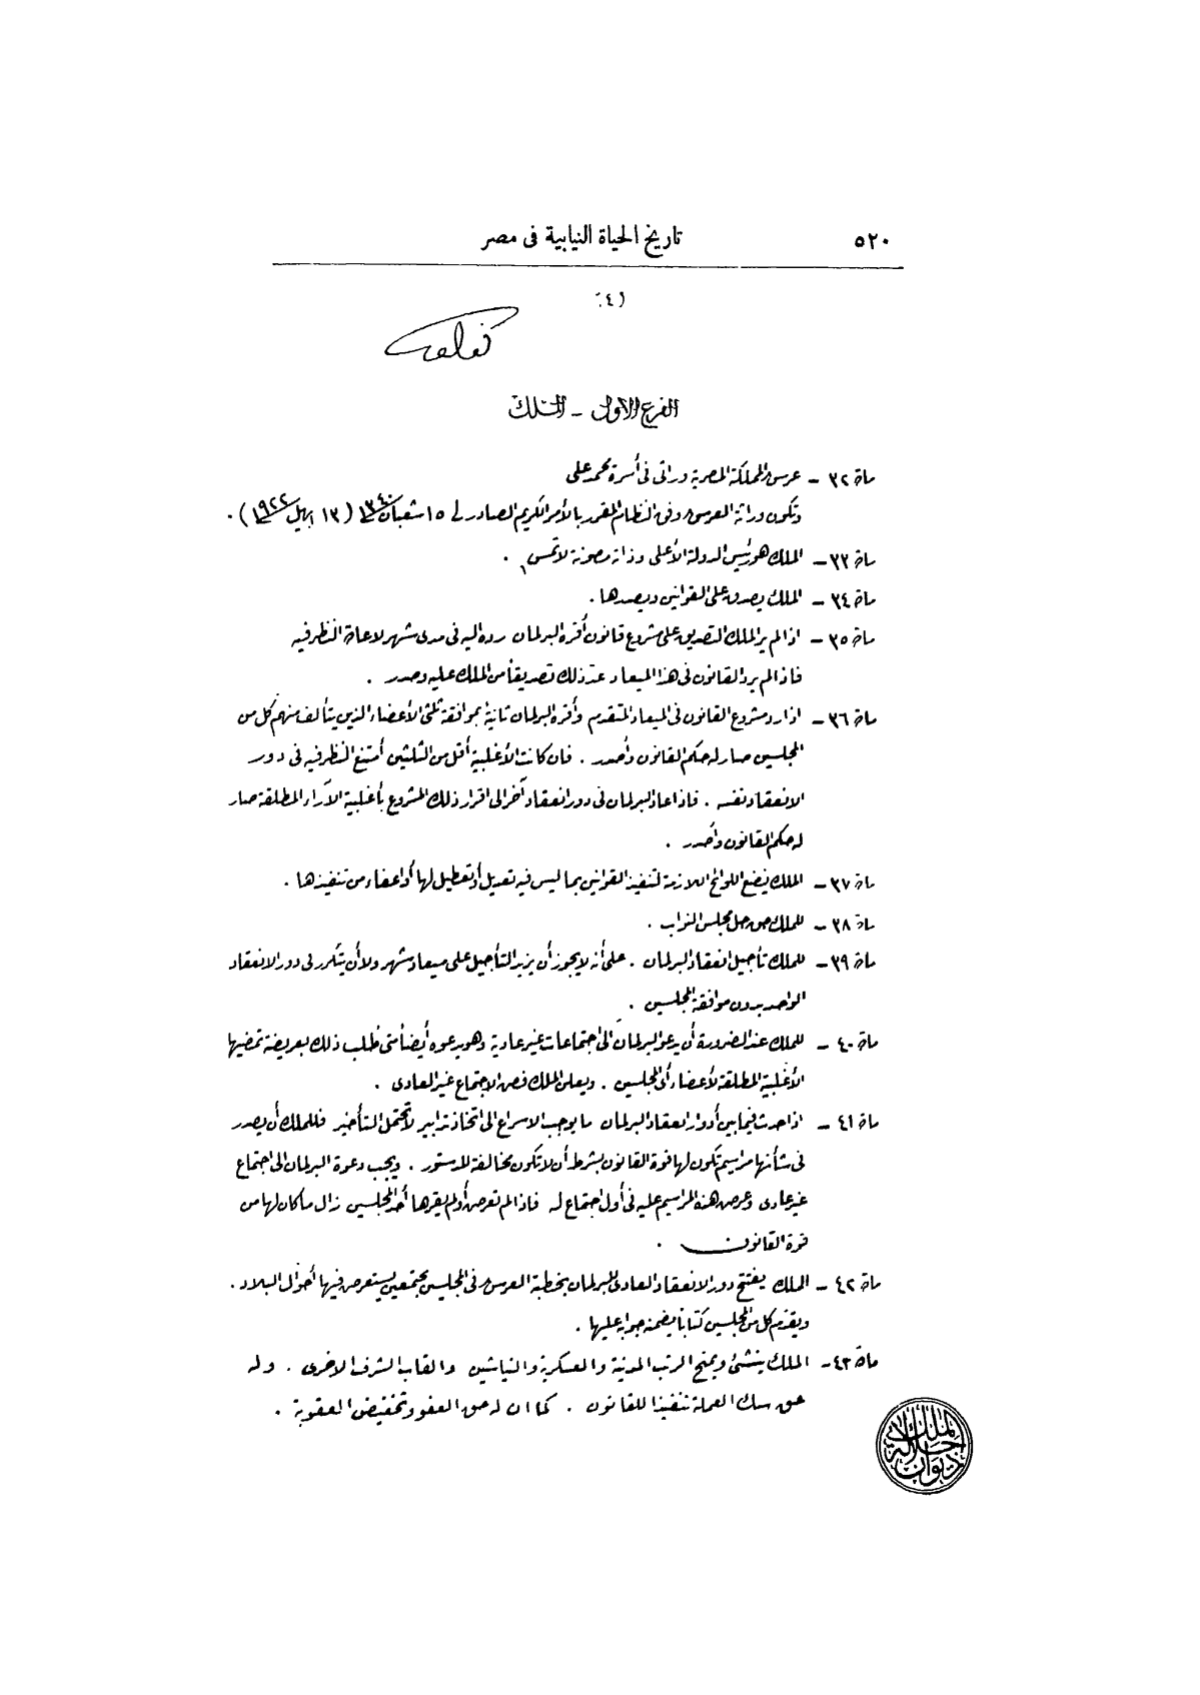 ٥٢٠ تاريخ الحياة النيابية فى مصر
(٤)
الفرع الأول - الملك
مادة ٣٢ - عرش المملكة المصرية وراثى فى أسرة محمد على
وتكون وراثة العرش وفق النظام المقرر بالأمر الكريم الصادر فى ١٥ شعبان ١٣٤٠ (١٣ ابريل ١٩٢٢) .
مادة ٣٣ - الملك هو رئيس الدولة الأعلى وذاته مصونة لا تمس .
مادة ٣٤ - الملك يصدق على القوانين ويصدرها .
مادة ٣٥ - اذا لم ير الملك التصديق على مشروع قانون أقره البرلمان رده اليه فى مدى شهر لاعادة النظر فيه
فاذا لم يرد القانون فى هذا الميعاد عد ذلك تصديقا من الملك عليه وصدر .
مادة ٣٦ - اذا رد مشروع القانون فى الميعاد المتقدم وأقره البرلمان ثانية بموافقة ثلثى الأعضاء الذين يتألف منهم كل من
المجلسين صار له حكم القانون وأصدر . فان كانت الأغلبية أقل من الثلثين أمتنع النظر فيه فى دور
الانعقاد نفسه . فاذا عاد البرلمان فى دور انعقاد آخر الى اقرار ذلك المشروع بأغلبية الآراء المطلقة صار
له حكم القانون وأصدر .
مادة ٣٧ - الملك يضع اللوائح اللازمة لتنفيذ القوانين بما ليس فيه تعديل أو تعطيل لها أو اعفاء من تنفيذها .
مادة ٣٨ - للملك حق حل مجلس النواب .
مادة ٣٩ - للملك تأجيل انعقاد البرلمان . على أنه لا يجوز أن يزيد التأجيل على ميعاد شهر ولا أن يتكرر فى دور الانعقاد
الواحد بدون موافقة المجلسين .
مادة ٤٠ - للملك عند الضرورة أن يدعو البرلمان الى اجتماعات غير عادية وهو يدعوه أيضا متى طلب ذلك بعريضة تمضيها
الأغلبية المطلقة لأعضاء أى المجلسين . ويعلن الملك فض الاجتماع غير العادى .
مادة ٤١ - اذا حدث فيما بين أدوار انعقاد البرلمان ما يوجب الاسراع الى اتخاذ تدابير لا تحتمل التأخير فللملك أن يصدر
فى شأنها مراسيم تكون لها قوة القانون بشرط أن لا تكون مخالفة للدستور . ويجب دعوة البرلمان الى اجتماع
غير عادى وعرض هذه المراسيم عليه فى أول اجتماع له فاذا لم تعرض أو لم يقرها أحد المجلسين زال ما كان لها من
قوة القانون .
مادة ٤٢ - الملك يفتتح دور الانعقاد العادى للبرلمان بخطبة العرش فى المجلسين مجتمعين يستعرض فيها أحوال البلاد .
ويقدم كل من المجلسين كتابا يضمنه جوابه عليها .
مادة ٤٣ - الملك ينشئ ويمنح الرتب المدنية والعسكرية والنياشين والقاب الشرف الاخرى . وله
حق سك العملة تنفيذا للقانون . كما ان له حق العفو وتخفيض العقوبة .
ديوان جلالة الملك